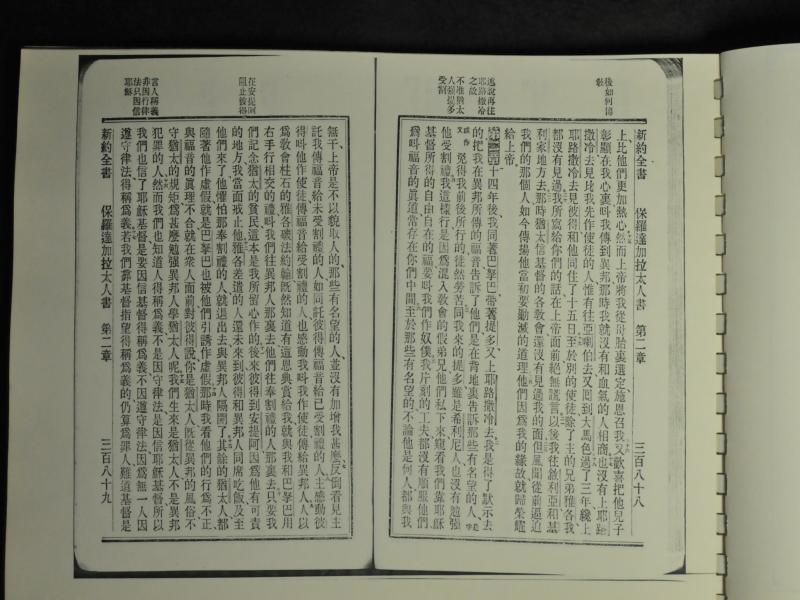 後如何傳
教
述說再往
耶路撒冷
之故
不准猶太
人强提多
受割
新約全書 保羅達加拉太人書 第二章 三百八十八
上比他們更加熱心然而上帝將我從母胎裏選定施恩召我又歡喜把他兒子
彰顯在我心裏呌我傳到異邦那時我就沒有和血氣的人相商也沒有上耶路
撒冷去見比我先作使徒的人惟有往亞喇伯去又囘到大馬色過了三年纔上
耶路撒冷去見彼得和他同住了十五日至於別的使徒除了主的兄弟雅各我
都沒有見過我所寫給你們的話在上帝面前絕無謊言以後我往敘利亞和基
利家地方去那時猶太信基督的各教會還沒有見過我的面但風聞從前逼迫
我們的那個人如今傳揚他當初要勦滅的道理他們因爲我的緣故就歸榮耀
給上帝
十四年後我同著巴拏巴帶著提多又上耶路撒冷去我是得了默示去
的把我在異邦所傳的福音告訴了他們是在背地裏告訴那些有名望的人
免得我前後所行的徒然勞苦同我來的提多雖是希利尼人也沒有勉强
他受割禮我這樣行是因爲混入敎會的假弟兄他們私下來窺看我們靠耶穌
基督所得的自由自在的福要呌我們作奴僕我片刻的工夫都沒有順服他們
爲呌福音的眞道常存在你們中間至於那些有名望的不論他是何人都與我
在安提阿
阻止彼得
言人稱義
非因行律
法只因信
耶穌
無干上帝是不以貌取人的那些有名望的人並沒有加增我甚麽反倒看見主
託我傳福音給未受割禮的人如同託彼得傳福音給已受割禮的人主感動彼
得呌他作使徒傳福音給受割禮的人也感動我呌我作使徒傳給異邦人人以
爲敎會柱石的雅各磯法約翰既然知道有這恩典賞給我就與我和巴拏巴用
右手行相交的禮呌我們往異邦人那裏去他們往奉割禮的人那裏去只要我
們記念猶太的貧民這本是我所留心作的後來彼得到安提阿因爲他有可責
的地方我當面戒止他雅各差遣的人還未來到彼得和異邦人同席吃飯及至
他們來了他懼怕那奉割禮的人就退出去與異邦人隔開了其餘的猶太人都
隨著他作虛假就是巴拏巴也被他們引誘作虛假那時我看他們的行爲不正
與福音的眞理不合就在衆人面前對彼得說你是猶太人既從異邦的風俗不
守猶太的規矩爲甚麽勉强異邦人學猶太人呢我們生來是猶太人不是異邦
犯罪的人然而我們也知道人得稱爲義不是因守律法是因信耶穌基督所以
我們也信了耶穌基督是要因信基督得稱爲義不因遵守律法因爲無一人因
遵守律法得稱爲義若我們靠基督指望得稱爲義的仍算爲罪人難道基督是
新約全書 保羅達加拉太人書 第二章 三百八十九